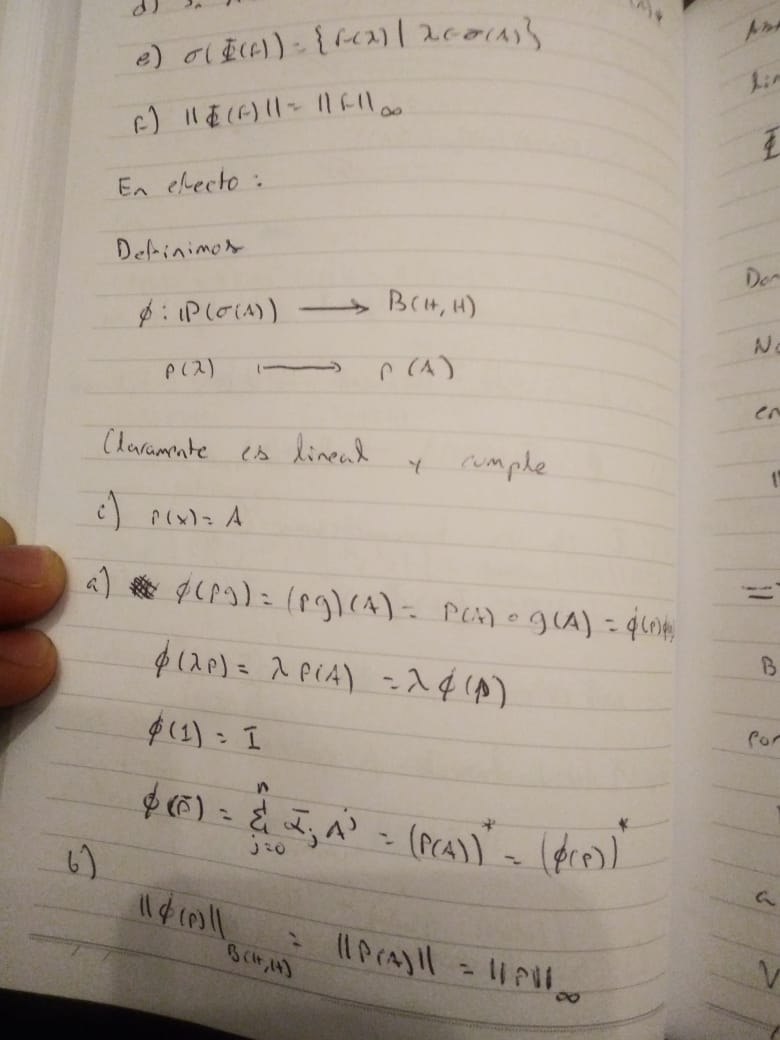 d)
e) σ(Φ(f)) = {f(λ) | λ∈σ(A)}
f) ||Φ(f)|| = ||f||∞
En efecto:
Definimos
ϕ: ℙ(σ(A)) ⟶ B(H, H)
p(λ) ⟼ p(A)
Claramente es lineal y cumple
c) p(x) = A
a) ϕ(pg) = (pg)(A) = p(A) ∘ g(A) = ϕ(p)ϕ(g)
ϕ(λp) = λ p(A) = λ ϕ(p)
ϕ(1) = I
ϕ(p̄) = Σ_{j=0}^{n} ᾱ_j A^j = (p(A))* = (ϕ(p))*
b)
||ϕ(p)||_{B(H,H)} = ||p(A)|| = ||p||∞
lin
Φ
Don
No
en
=
B
por
a
V